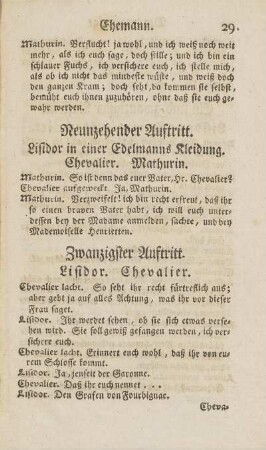 Ehemann. 29.
Mathurin. Verflucht! ja wohl, und ich weiß noch weit
mehr, als ich euch sage, doch stille; und ich bin ein
schlauer Fuchs, ich versichere euch, ich stelle mich
als ob ich nicht das mindeste wüste, und weiß doch
den ganzen Kram; doch seht, da kommen sie selbst,
bemüht euch ihnen zuzuhören, ohne daß sie euch ge-
wahr werden.
Neunzehender Auftritt.
Lisidor in einer Edelmanns Kleidung.
Chevalier. Mathurin.
Mathurin. So ist denn das euer Vater, Hr. Chevalier?
Chevalier aufgeweckt. Ja, Mathurin.
Mathurin. Verzweifelt! ich bin recht erfreut, daß ihr
so einen braven Vater habt, ich will euch unter-
dessen bey der Madame anmelden, sachte, und bey
Mademoiselle Henrietten.
Zwanzigster Auftritt.
Lisidor. Chevalier.
Chevalier lacht. So seht ihr recht fürtreflich aus;
aber gebt ja auf alles Achtung, was ihr vor dieser
Frau saget.
Lisidor. Ihr werdet sehen, ob sie sich etwas verse-
hen wird. Sie soll gewiß gefangen werden, ich ver-
sichere euch.
Chevalier lacht. Erinnert euch wohl, daß ihr von eu-
rem Schlosse kommt.
Lisidor. Ja, jenseit der Garonne.
Chevalier. Daß ihr euch nennet . . .
Lisidor. Den Grafen von Fourbignac.
Cheva-